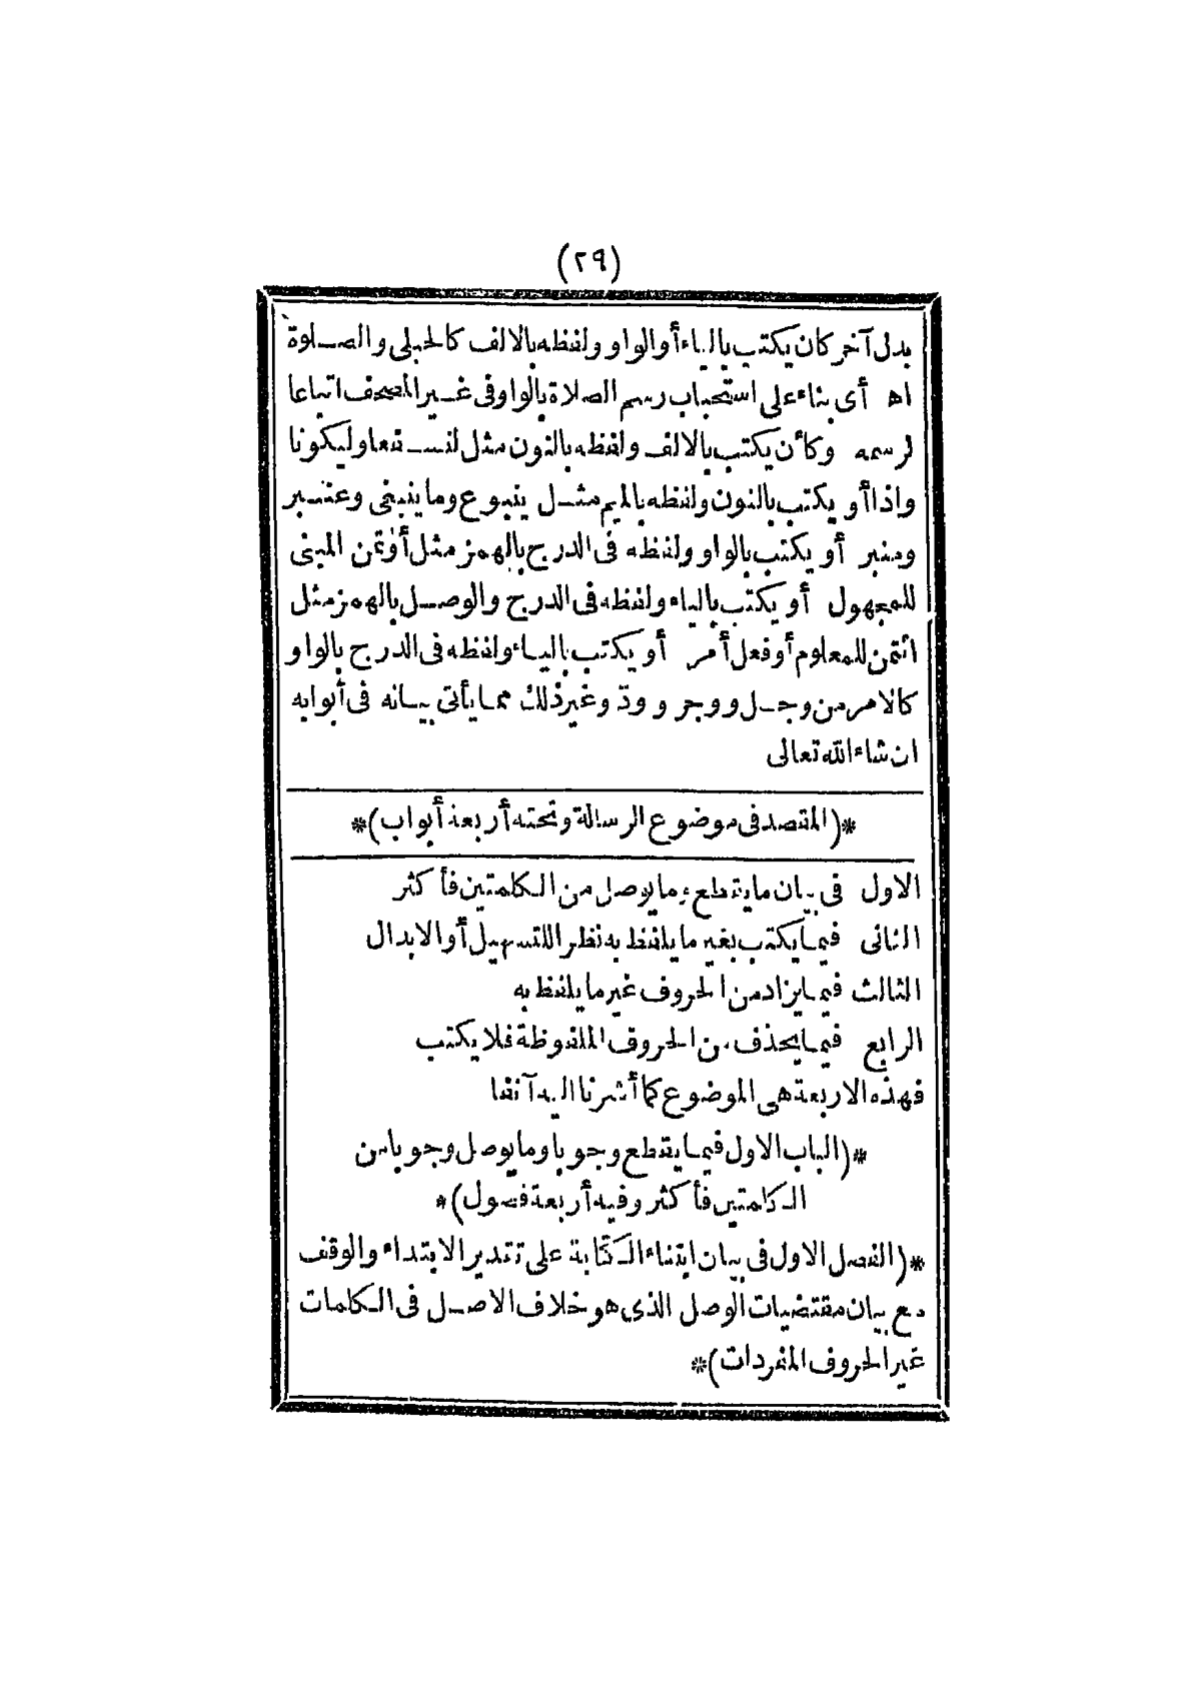 (٢٩)
بدل آخر كان يكتب بالياء أو الواو ولفظه بالالف كالحبلى والصلوة
اه أى بناء على استحباب رسم الصلاة بالواو فى غير المصحف اتباعا
لرسمه وكأن يكتب بالالف ولفظه بالنون مثل لنسفعا وليكونا
واذا أو يكتب بالنون ولفظه بالميم مثل ينبوع وما ينبغى وعنبر
ومنبر أو يكتب بالواو ولفظه فى الدرج بالهمز مثل أوتمن المبنى
للمجهول أو يكتب بالياء ولفظه فى الدرج والوصل بالهمز مثل
ائتمن للمعلوم أو فعل أمر أو يكتب بالياء ولفظه فى الدرج بالواو
كالامر من وجل ووجر وودّ وغير ذلك مما يأتى بيانه فى أبوابه
ان شاء الله تعالى
*(المقصد فى موضوع الرسالة وتحته أربعة أبواب)*
الاول فى بيان ما يقطع وما يوصل من الكلمتين فأكثر
الثانى فيما يكتب بغير ما يلفظ به نظر اللتسهيل أو الابدال
الثالث فيما يزاد من الحروف غير ما يلفظ به
الرابع فيما يحذف من الحروف الملفوظة فلا يكتب
فهذه الاربعة هى الموضوع كما أشرنا اليه آنفا
*(الباب الاول فيما يقطع وجوبا وما يوصل وجوبا من
الكلمتين فأكثر وفيه أربعة فصول)*
*(الفصل الاول فى بيان ابتناء الكتابة على تقدير الابتداء والوقف
مع بيان مقتضيات الوصل الذى هو خلاف الاصل فى الكلمات
غير الحروف المفردات)*